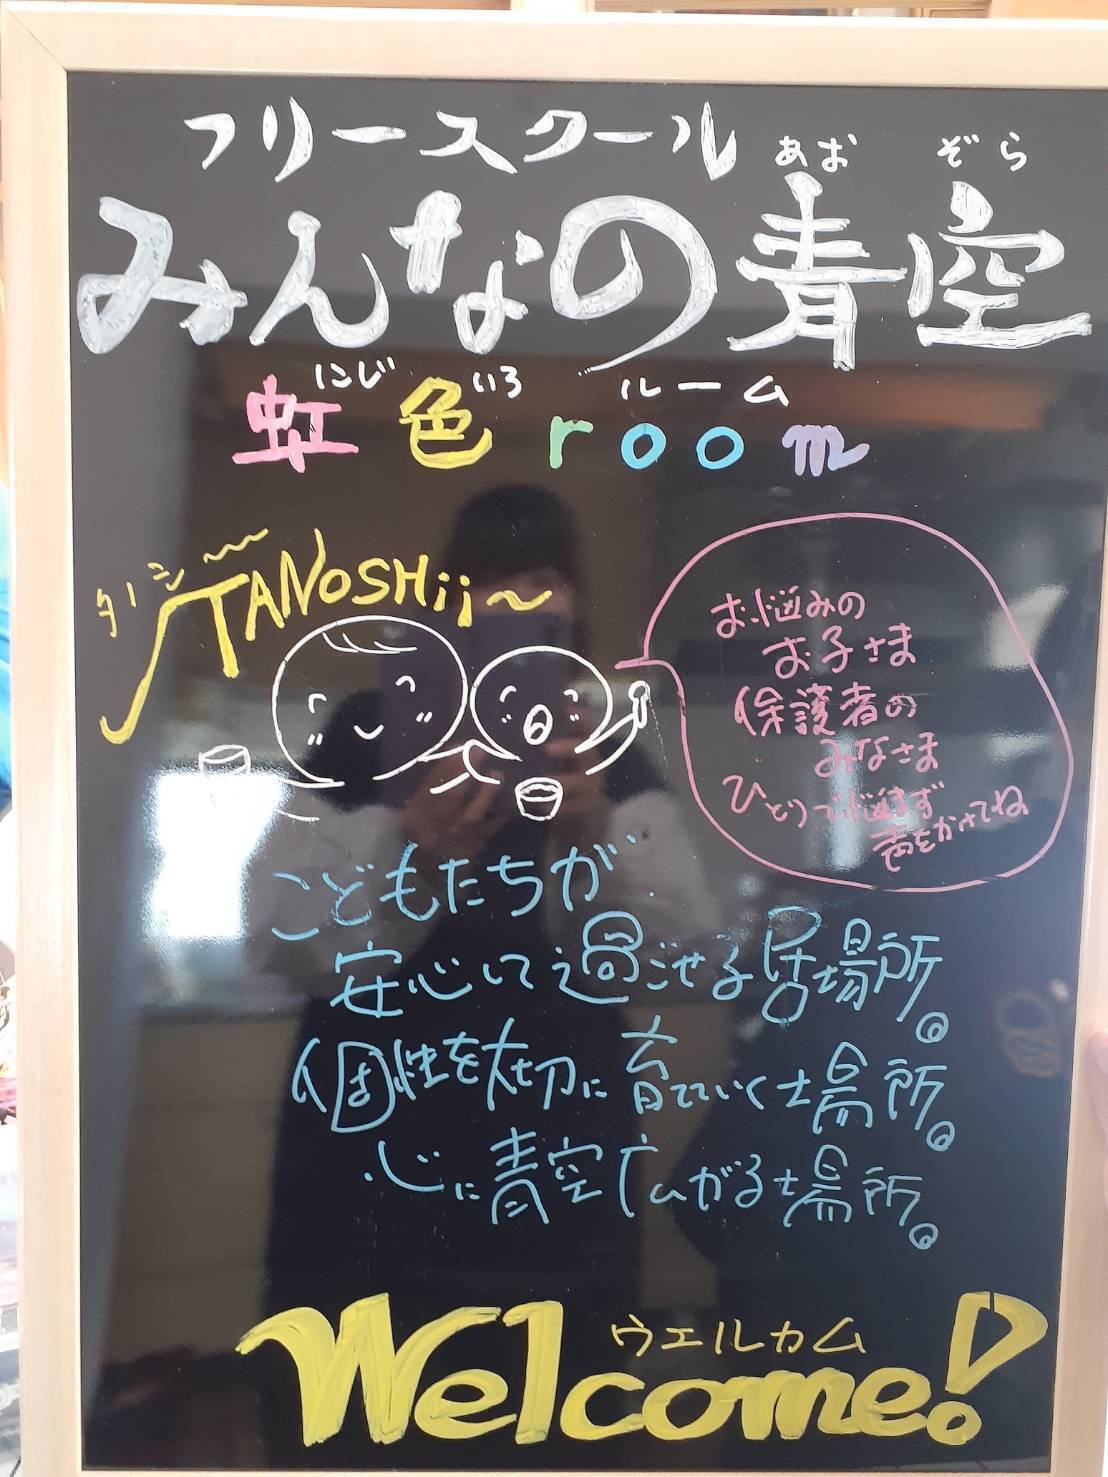 フリースクール
あお ぞら
みんなの青空
にじ いろ ルーム
虹色room
タノシ〜〜
TANOSHii〜
お悩みの
お子さま
保護者の
みなさま
ひとりで悩まず
声をかけてね
こどもたちが
安心して過ごせる居場所。
個性を大切に育てていく場所。
心に青空広がる場所。
ウエルカム
Welcome!